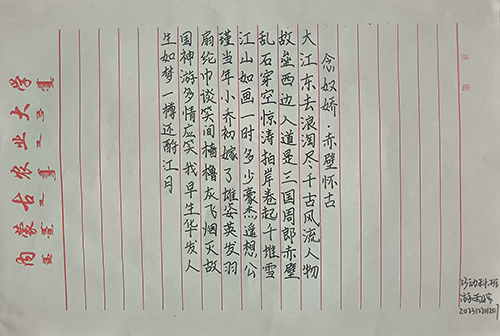 念奴娇·赤壁怀古
大江东去浪淘尽千古风流人物
故垒西边人道是三国周郎赤壁
乱石穿空惊涛拍岸卷起千堆雪
江山如画一时多少豪杰遥想公
瑾当年小乔初嫁了雄姿英发羽
扇纶巾谈笑间樯橹灰飞烟灭故
国神游多情应笑我早生华发人
生如梦一樽还酹江月
内蒙古农业大学